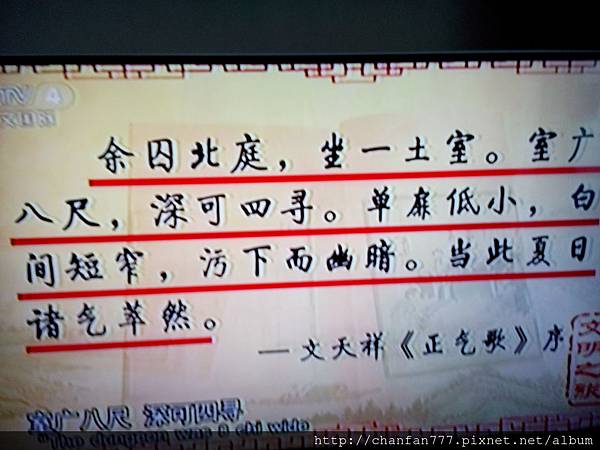 TV 4
余囚北庭，坐一土室。室广
八尺，深可四寻。单扉低小，白
间短窄，污下而幽暗。当此夏日
诸气萃然。
—文天祥《正气歌》序
文明之旅
室广八尺 深可四寻
"The dungeon was 8 chi wide
http://chanfan777.pixnet.net/album